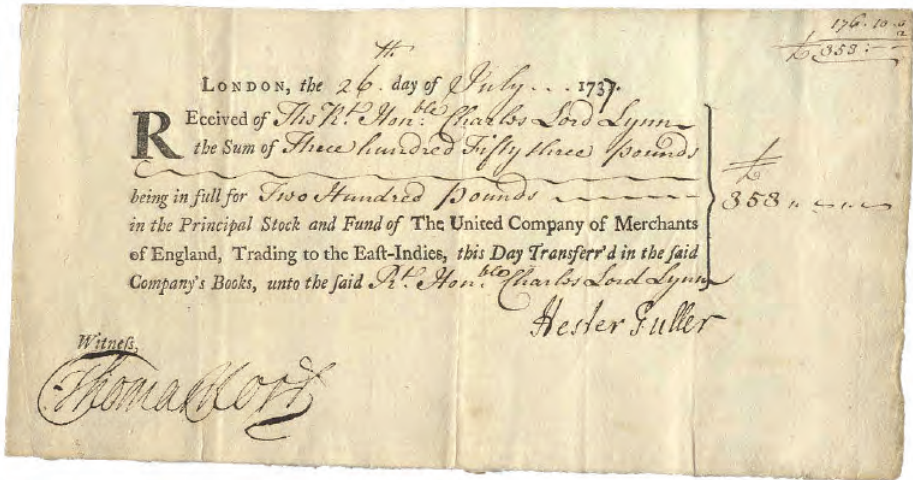 176.10.0
£ 353:–
LONDON, the 26th. day of July . . . 1737.
REceived of The Rt. Honble. Charles Lord Lynn
the Sum of Three hundred Fifty three pounds
£ 353 „ – „ –
being in full for Two Hundred pounds
in the Principal Stock and Fund of The United Company of Merchants
of England, Trading to the Eaſt-Indies, this Day Tranſferr'd in the ſaid
Company's Books, unto the ſaid Rt. Honble. Charles Lord Lynn
Hester Fuller
Witneſs,
Thomas